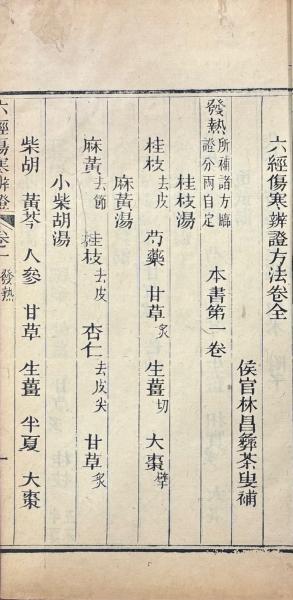 六經傷寒辨證方法卷全
侯官林昌彝茶叟補
發熱 所補諸方臨證分兩自定 本書第一卷
桂枝湯
桂枝去皮 芍藥 甘草炙 生薑切 大棗擘
麻黃湯
麻黃去節 桂枝去皮 杏仁去皮尖 甘草炙
小柴胡湯
柴胡 黃芩 人參 甘草 生薑 半夏 大棗
六經傷寒辨證 卷一 發熱 一